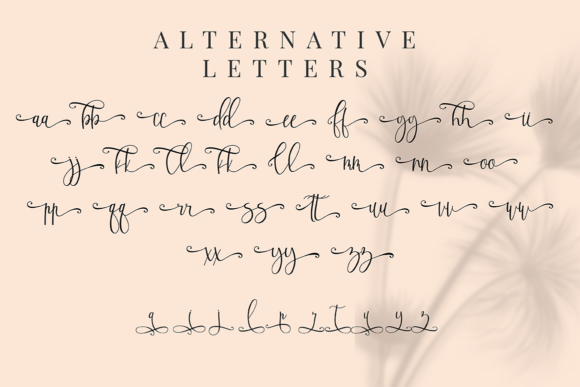 ALTERNATIVE
LETTERS
aa bb cc dd ee ff gg hh ii
jj kk ll kk ll mm nn oo
pp qq rr ss tt uu vv ww
xx yy zz